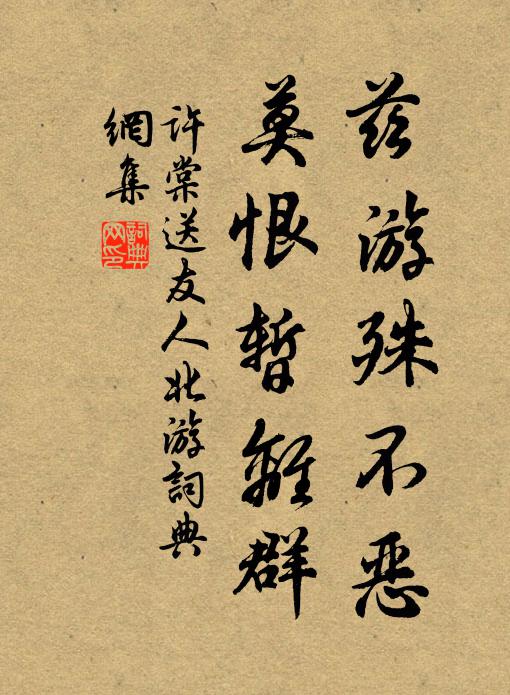 兹游殊不恶
莫恨暂離群
许棠送友人北游詞典
網集
詞典网印